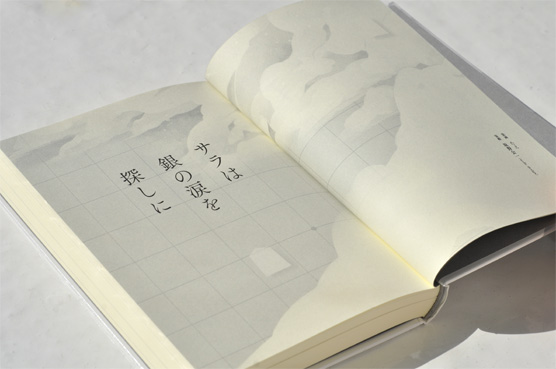 サラは
銀の涙を
探しに